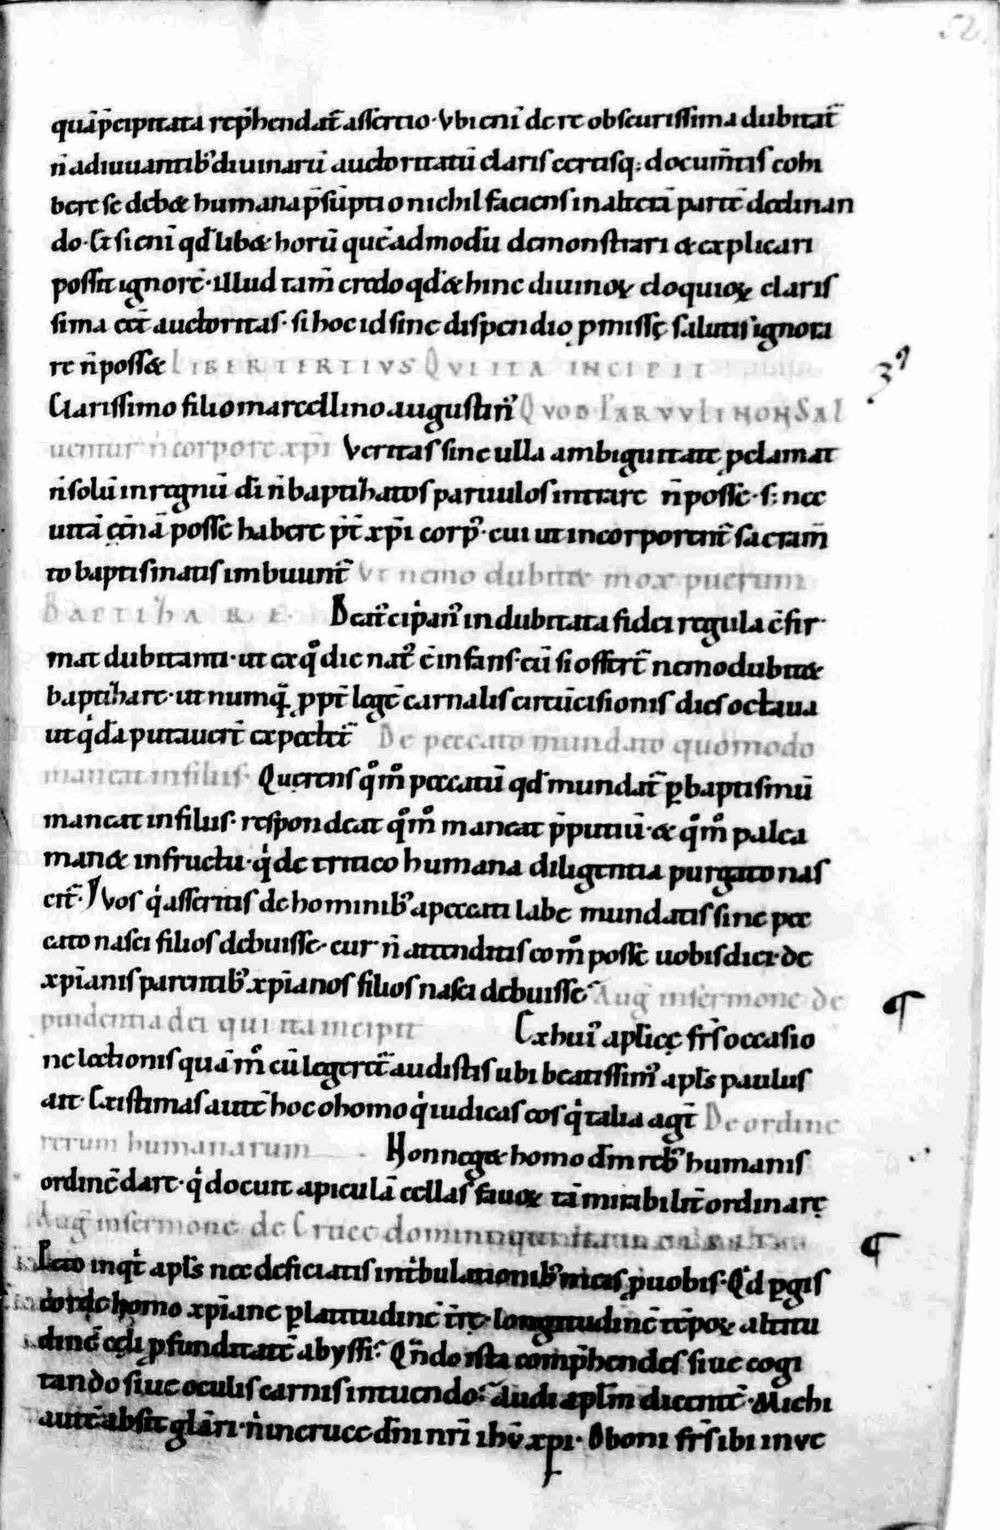 52.
quāp̄cipitata rep̄hendat̄ assertio· Vbi enī de re obscurissima dubitat̄
n̄ adiuuantib; diuinarū auctoritatū claris certisq; docum̄tis cohi
bere se debet humana p̄sūptio nichil faciens in alterā partē declinan
do· Et si enī qd̄ libet horū quēadmodū demonstrari et explicari
possit ignorē· illud tam̄ credo qd̄ et hinc diuinoꝝ eloquioꝝ claris
sima eēt auctoritas· si hoc id sine dispendio ꝓmissę salutis ignora
re n̄ posset LIBER TERTIVS QVI ITA INCIPIT
Clarissimo filio marcellino augustin᾽ QVOD PARVVLI NON SAL
uentur n̄ corpore xp̄i Veritas sine ulla ambiguitate ꝓclamat
n̄ solū in regnū dī n̄ baptizatos paruulos intrare n̄ posse· s; nec
uitā ęt̄nā posse habere p̄t̄ xp̄i corp᾽· cui ut incorporent̄ sacram̄
to baptismatis imbuunt̄ Vt nemo dubitet mox puerum
BAPTIZARE· Beat᾽ cipan᾽ indubitata fidei regula c̄fir
mat dubitanti· ut ex qͦ die nat᾽ ē infans· cū si offert̄ nemo dubitet
baptizare· ut numqͣ ꝓpt̄ legē carnalis circūcisionis dies octaua
ut qͥdā putauert̄ expectet̄ De peccato mundato quomodo
maneat in filiis· Querens qͦmͦ peccatū qd̄ mundat̄ ꝑ baptismū
maneat in filiis· respondeat qͦmͦ maneat p̄putiū· et qͦmͦ palea
manet in fructu· qͥ de tritico humana diligentia purgato nas
cit̄· Vos qͥ asseritis de hominib; a peccati labe mundatis sine pec
cato nasci filios debuisse· cur n̄ attenditis eomͦ posse uobis dici· de
xp̄ianis parentib; xp̄ianos filios nasci debuisse Aug̃ in sermone de
puidentia dei qui ita incipit Ex hui᾽ aplicę fr̄s occasio
ne lectionis quā mͦ cū legeret̄ audistis ubi beatissim᾽ apl̄s paulus
ait· Existimas autē hoc o homo qͥ iudicas eos qͥ talia agt̄ De ordine
rerum humanarum Non neget homo dm̄ reb; humanis
ordinē dare· qͥ docuit apiculā cellas fauoꝝ tā mirabilit̄ ordinarę
Aug̃ in sermone de Cruce domini
inqͥt apl̄s nec deficiatis in t̄bulationib; meis ꝓ uobis· Qͥd ꝑgis
homo xp̄iane ꝑ latitudinē t̄rę· longitudinē tēpoꝝ altitu
dinē cęli ꝓfunditatē abyssi· Qn̄do ista comp̄hendes siue cogi
tando siue oculis carnis intuendo· Audi aplm̄ dicentē· Michi
autē absit gla᷒ri· nͥ in cruce dn̄i nr̄i ihū xp̄i· O boni fr̄s ibi inue